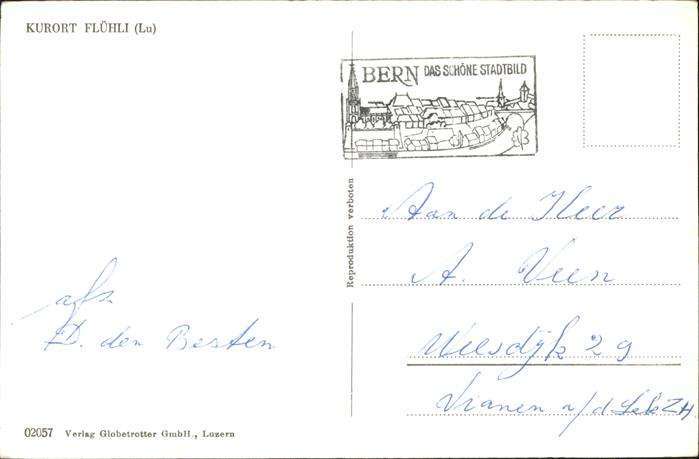 KURORT FLÜHLI (Lu)
BERN DAS SCHÖNE STADTBILD
Reproduktion verboten
Aan de Heer
A. Veen
29
Vianen a/d Lek ZH
afz.
D. den Besten
02057 Verlag Globetrotter GmbH., Luzern